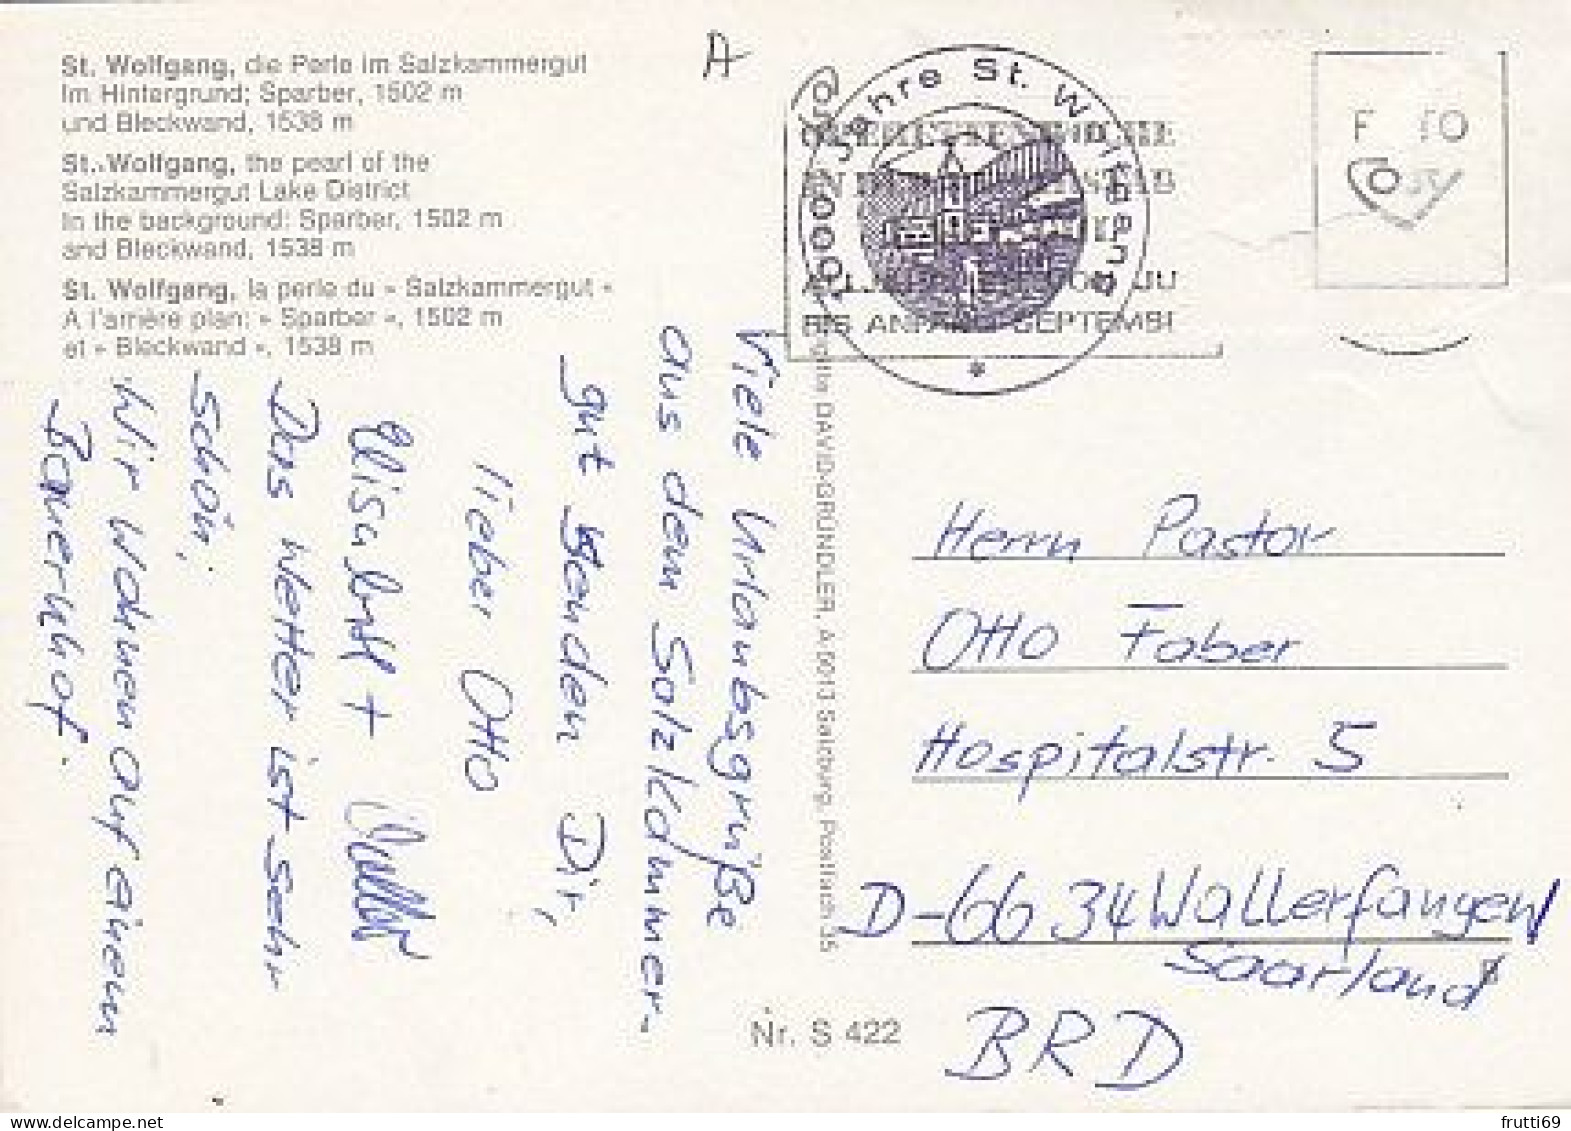 St. Wolfgang, die Perle im Salzkammergut
Im Hintergrund: Sparber, 1502 m
und Bleckwand, 1538 m
St. Wolfgang, the pearl of the
Salzkammergut Lake District
In the background: Sparber, 1502 m
and Bleckwand, 1538 m
St. Wolfgang, la perle du « Salzkammergut »
A l'arrière plan: « Sparber », 1502 m
et « Bleckwand », 1538 m
A
Jahre St. Wolfgang
BIS ANFANG SEPTEMBE
Viele Urlaubsgrüße
aus dem Salzkammer-
gut senden Dir,
lieber Otto
+
Das Wetter ist sehr
schön,
Wir wohnen auf einem
Bauernhof.
DAVID-GRÜNDLER, A 5013 Salzburg, Postfach 35
Herrn Pastor
Otto Faber
Hospitalstr. 5
D-6634 Wallerfangen
Saarland
BRD
Nr. S 422
frutti69